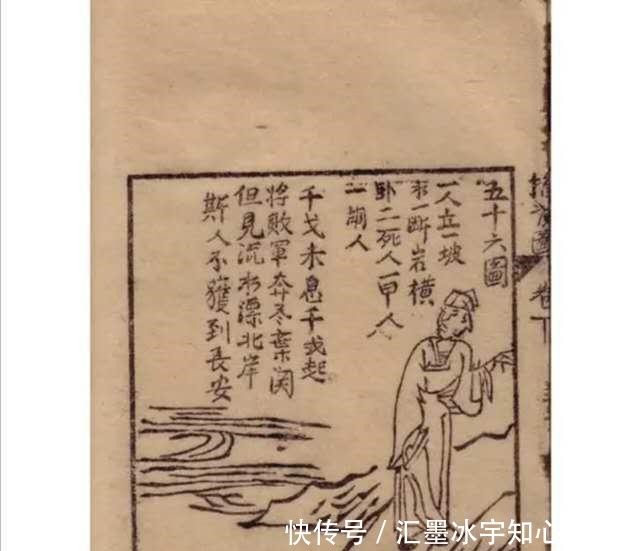 五十六圖
一人立一坡
一斷岩橫
卧二死人一甲人
一崩人
干戈未息干戈起
將敗軍奔冬棄関
但見流水漂北岸
斯人不獲到長安
卷下
快传号/汇墨冰宇知心